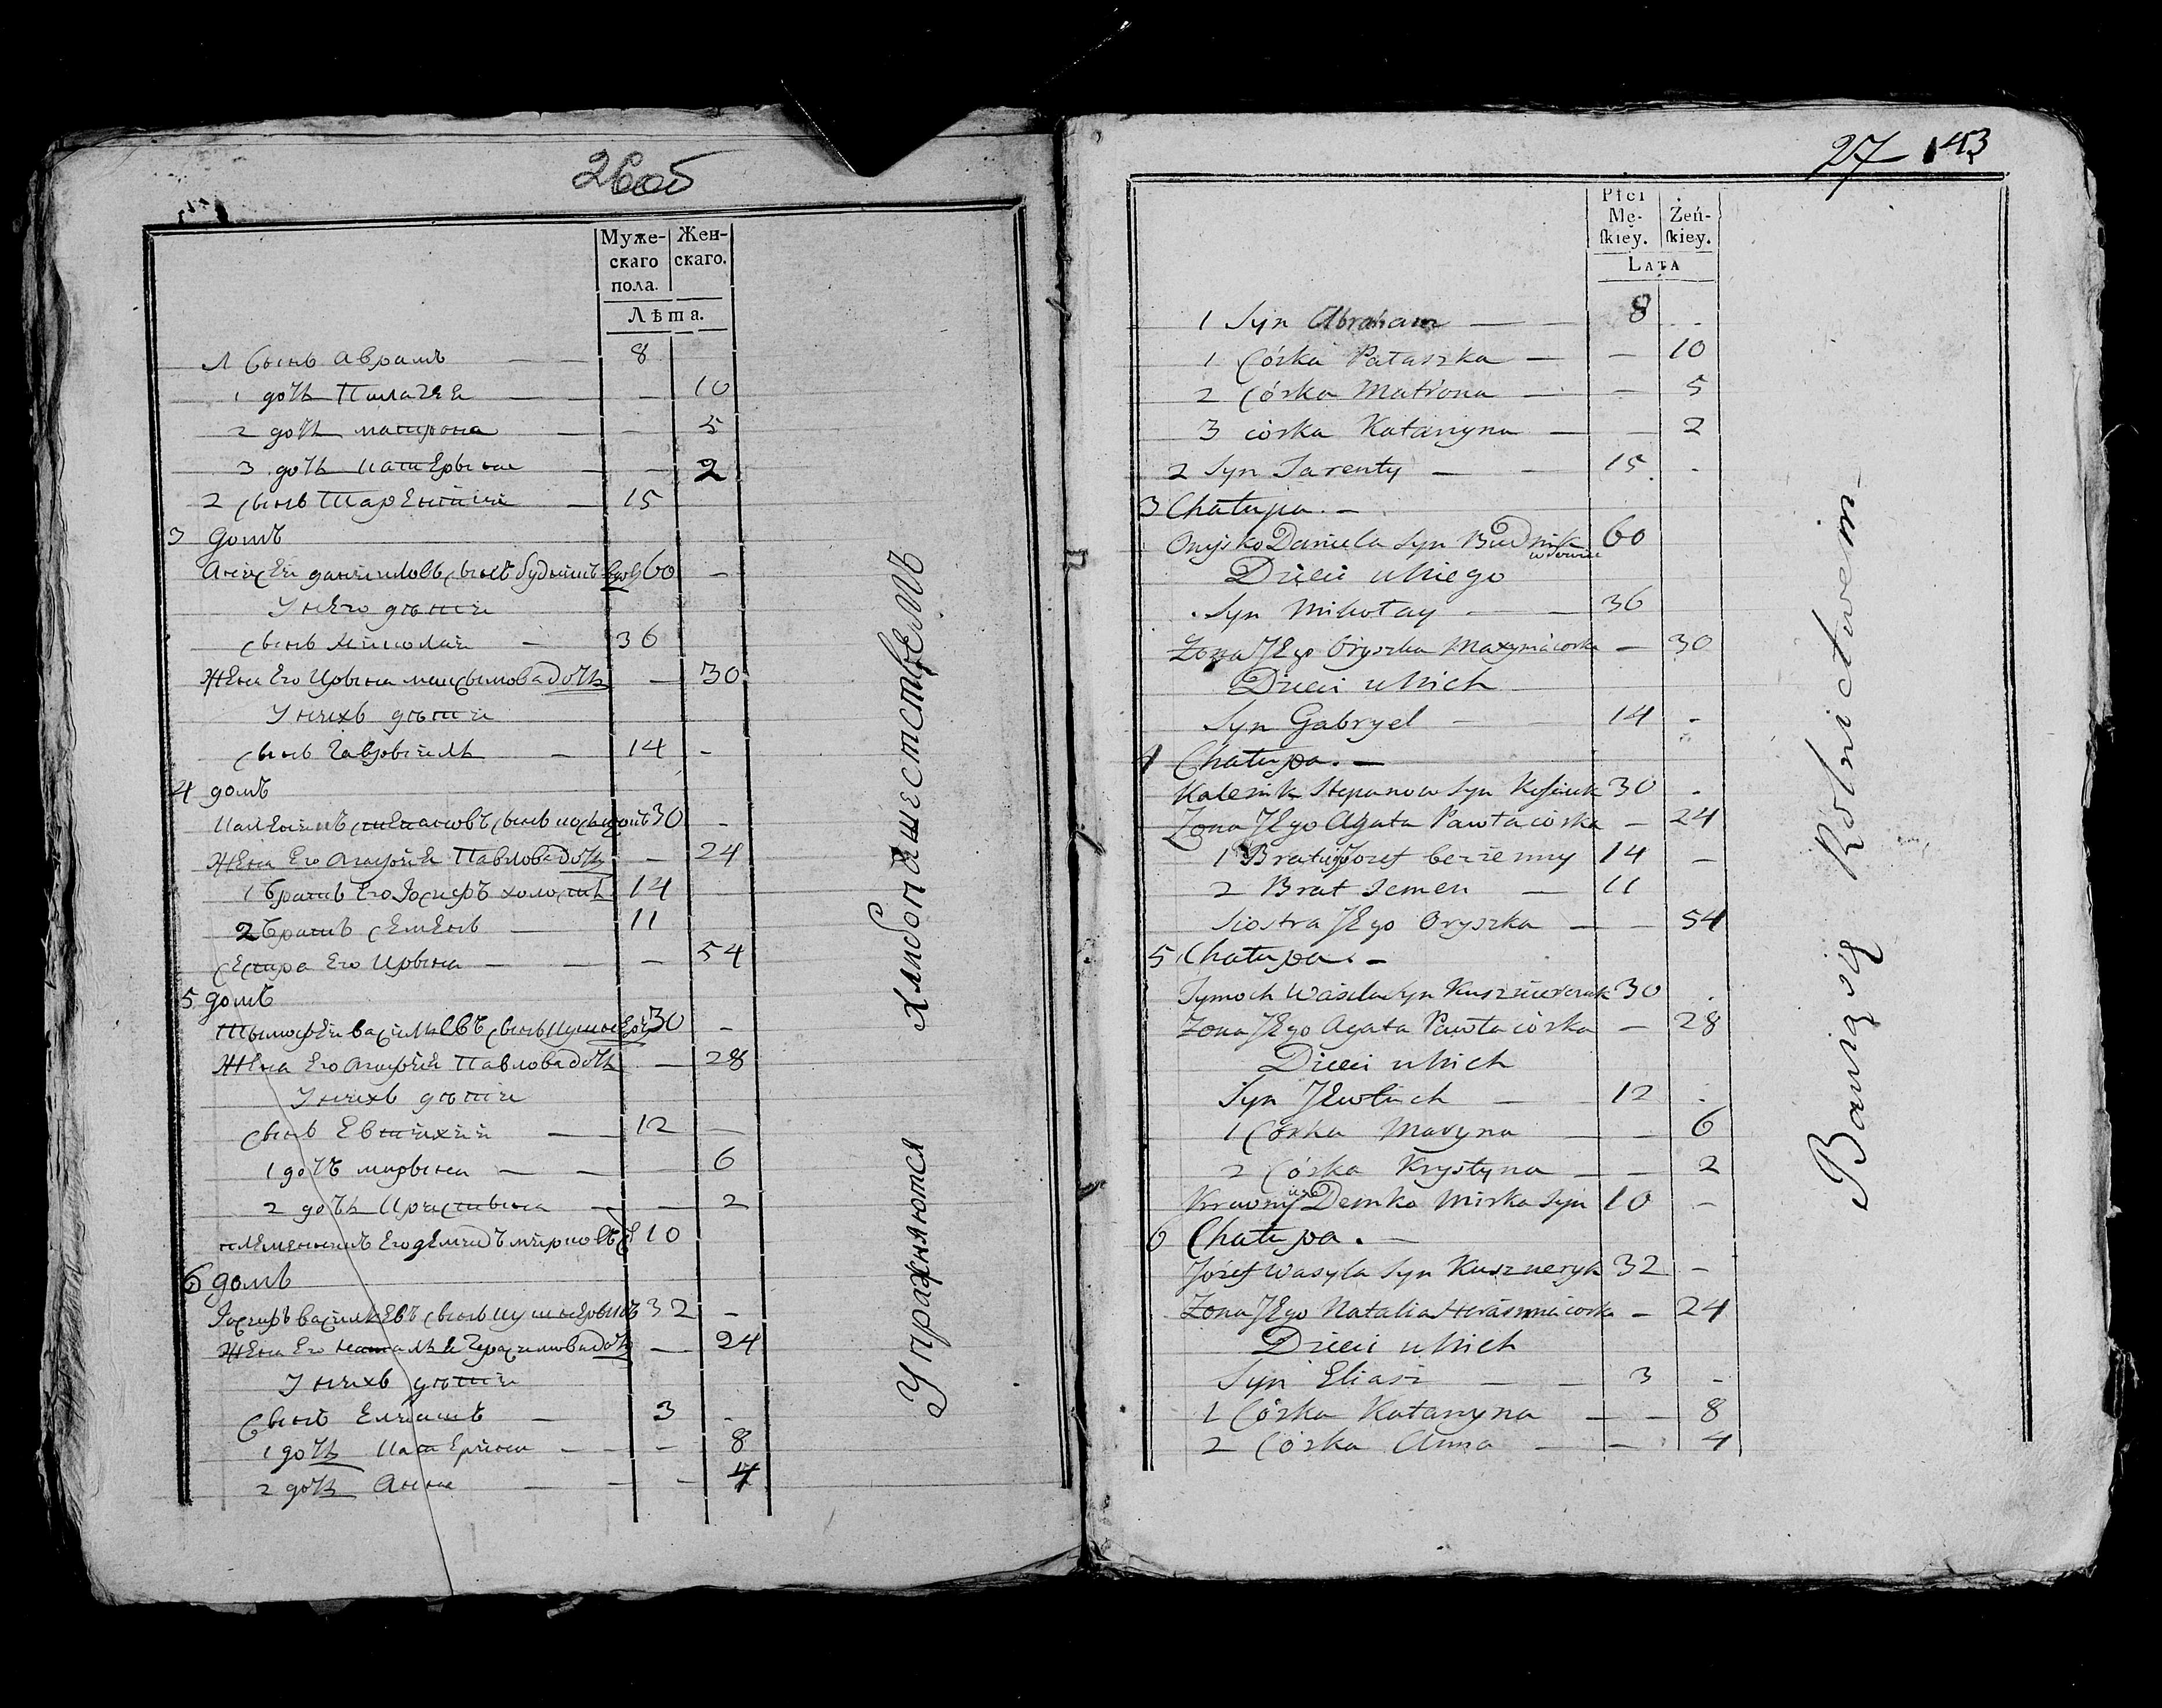 26 об
Муже- Жен-
скаго скаго.
пола.
Лѣта.
1 Сынъ Аврамъ — — 8
1 дочь Палагея — — 10
2 дочь матрона — — 5
3 дочь катерына — — 2
2 сынъ Тарентий — 15
3 домъ
Анисей данииловъ сынъ будникъ вдовъ 60 —
У него дѣти
сынъ Николай — 36
Жена Его Ирына максымова дочь — 30
У нихъ дѣти
сынъ Гаврыилъ — 14 —
4 домъ
Каленикъ степановъ сынъ 30 —
Жена Его Агафия Павлова дочь — 24
1 братъ Его Іосифъ холостъ 14
2 братъ семенъ — 11
сестра Его Ирына — — — 54
5 домъ
Тымофей васильевъ сынъ 30 —
Жена Его Агафия Павлова дочь — 28
У нихъ дѣти
сынъ Евтихий — 12 —
1 дочъ марына — — — 6
2 дочь Христына — — 2
племенникъ Его демидъ мирковъ с 10
6 домъ
Іосифъ васильевъ сынъ кушнерыкъ 32 —
Жена Его наталья Герасимова дочь — 24
У нихъ дѣти
Сынъ Елиашъ — 3 -
1 дочь Катерина — — 8
2 дочь Анна — — — 4
Упражняются Хлибопашествемъ
27 143
Płci
Mę- Żeń-
skiey. skiey.
LATA
1 Syn Abraham — — 8 -
1 Córka Pałaszka — — 10
2 Córka Matrona — - 5
3 córka Katarzyna — — 2
2 Syn Tarenty — — 15 -
3 Chałupa. —
Onysko Daniela Syn Budnik wdowiec 60
Dzieci u Niego
Syn Mikołay — — 36
Żona JEgo Oryszka Maxyma córka — 30
Dzieci u Nich
Syn Gabryel — — 14 -
4 Chałupa. —
Kalenik Stepanow Syn 30 -
Żona JEgo Agata Pawła córka — 24
1 Brat iego Jozef bezżenny 14 —
2 Brat Semen — 11
Siostra JEgo Oryszka — — 54
5 Chałupa. —
Tymoch Wasila Syn Kusznierczuk 30 .
Żona JEgo Agata Pawła córka — 28
Dzieci u Nich
Syn JEwtuch — 12 -
1 Córka Maryna — — 6
2 Córka Krystyna — — 2
Krewny iego Demko Mirka Syn 10 —
6 Chałupa. —
Józef Wasyla Syn Kuszneryk 32 —
Żona JEgo Natalia Herasyma córka — 24
Dzieci u Nich
Syn Eliasz — — 3 -
1 Córka Katarzyna — — 8
2 Córka Anna — — 4
Bawią się Rolnictwem